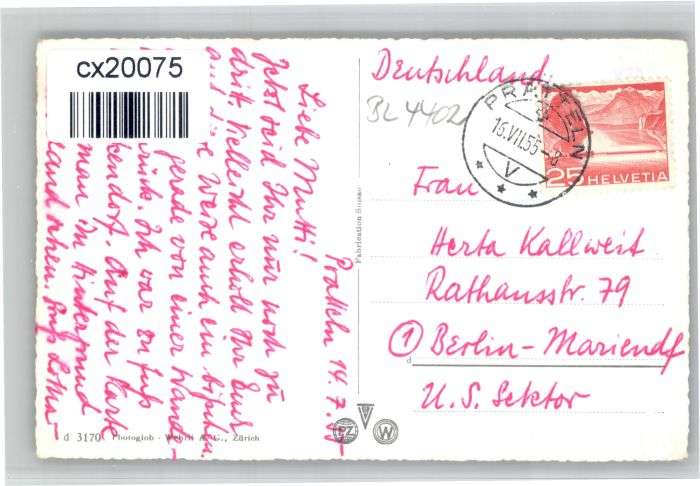 cx20075
Deutschland
BL 4402
PRATTELN
16.VII.55
V
25 HELVETIA
Frau
Herta Kallweit
Rathausstr. 79
1 Berlin-Mariendf
U.S. Sektor
Pratteln 14.7.55
Liebe Mutti!
Jetzt seid Ihr nur noch zu
dritt. Vielleicht erholt Ihr Euch
auf diese Weise auch ein bißchen.
gerade von einer Wand-
Ich war zu Fuß
Auf der Karte
man im Hintergrund
sehen. Gruß Lothar
Fabrication Suisse
d 3170 Photoglob - Wehrli A. G., Zürich
PZ
W